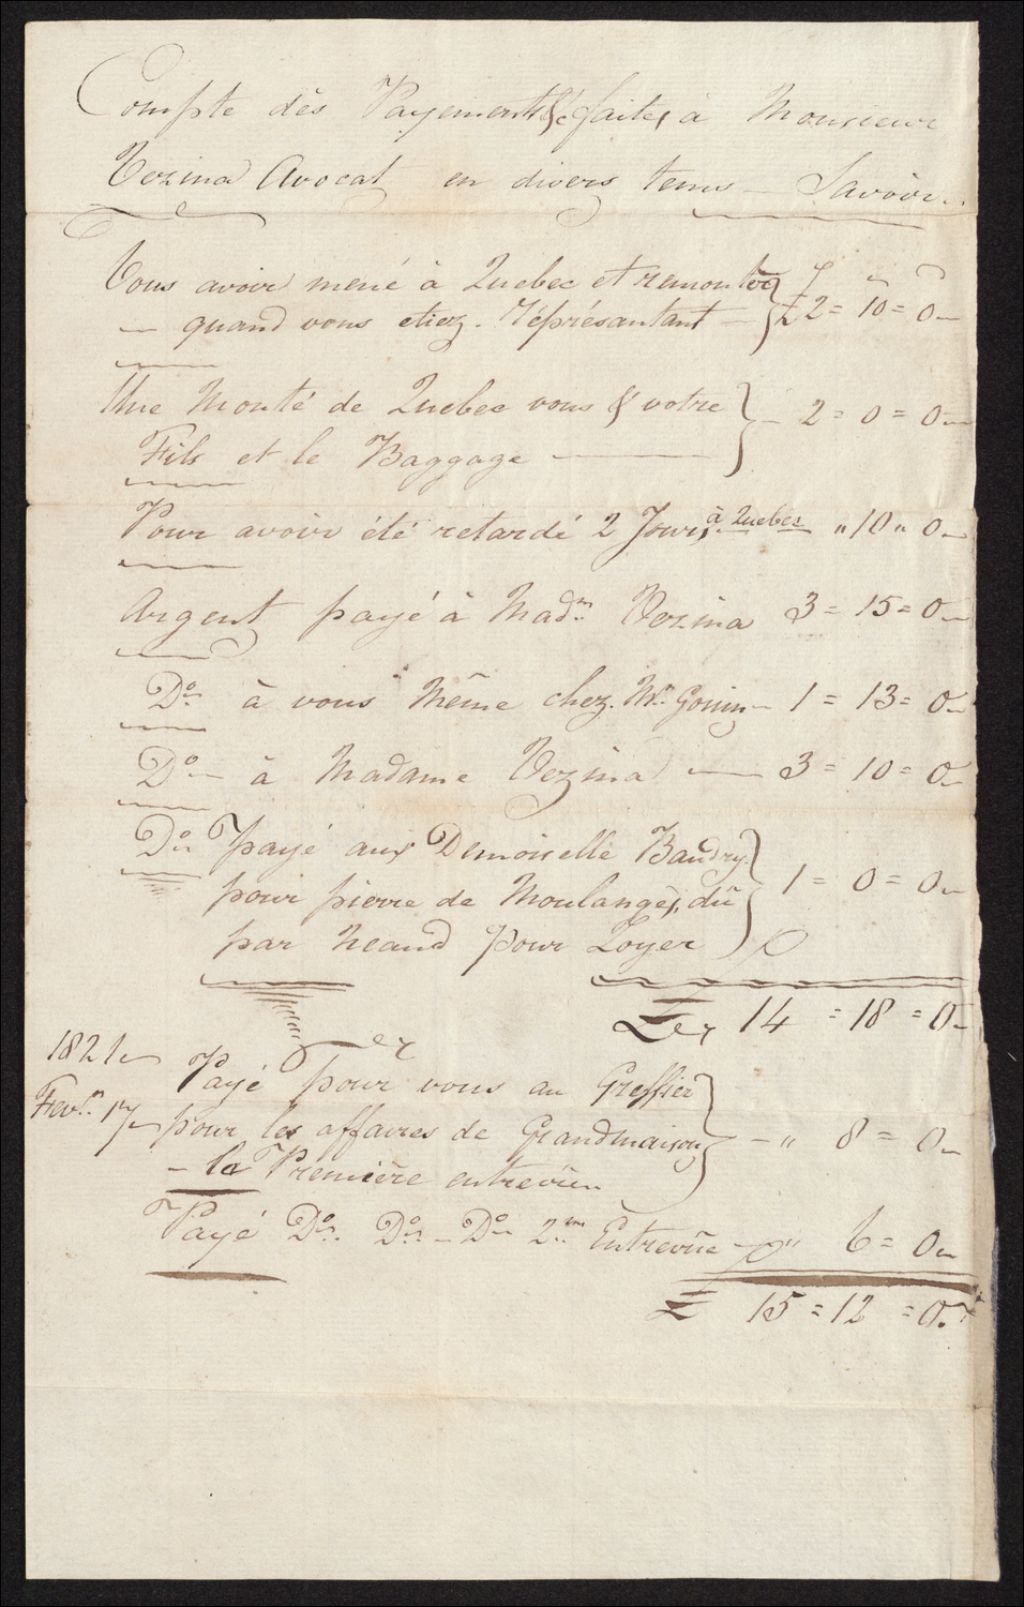 Compte dès Payements &c faites, à Monsieur
Vezina Avocat en divers tems — Savoir..
Vous avoir mené à Quebec et remonter
— quand vous etiez. Réprésantant — £ 2 = 10 = 0
Une Monté de Quebec vous & votre
Fils et le Baggage — 2 = 0 = 0
Pour avoir été retardé 2 Jours, à Quebec " 10 " 0
Argent payé à Madm. Vezina 3 = 15 = 0
Do. à vous Même chez. Mr. Gouin — 1 = 13 = 0
Do. — à Madame Vezina — 3 = 10 = 0
Do. payé aux Demoiselle Baudry.
pour pierre de Moulanges, dû 1 = 0 = 0
par Neaud pour Loyer
£er 14 = 18 = 0
1821
Payé pour vous au Greffier
Fevr. 17 pour les affaires de Grandmaison — " 8 = 0
— la Premiére entrevüe
Payé Do. Do. — Do. 2me Entrevüe — " 6 = 0
£ 15 = 12 = 0.